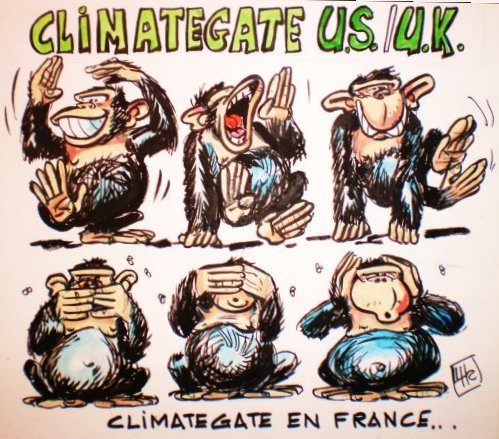 CLIMATEGATE U.S./U.K.
CLIMATEGATE EN FRANCE...